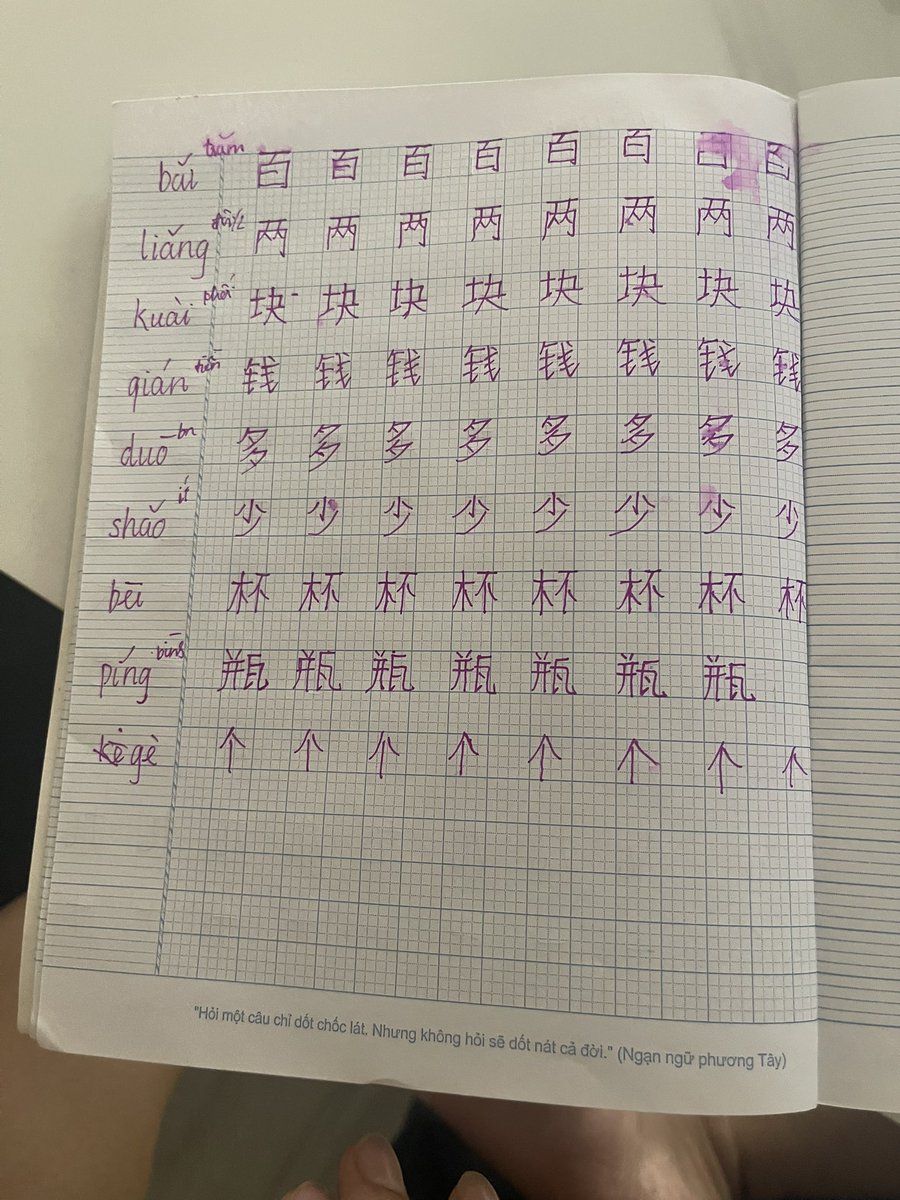 bǎi trăm 百 百 百 百 百 百 百 百
liǎng 两 两 两 两 两 两 两 两
kuài phôi 块 块 块 块 块 块 块 块
qián tiền 钱 钱 钱 钱 钱 钱 钱 钱
duō 多 多 多 多 多 多 多 多
shǎo ít 少 少 少 少 少 少 少 少
bēi 杯 杯 杯 杯 杯 杯 杯 杯
píng 瓶 瓶 瓶 瓶 瓶 瓶 瓶
gè 个 个 个 个 个 个 个 个
"Hỏi một câu chỉ dốt chốc lát. Nhưng không hỏi sẽ dốt nát cả đời." (Ngạn ngữ phương Tây)